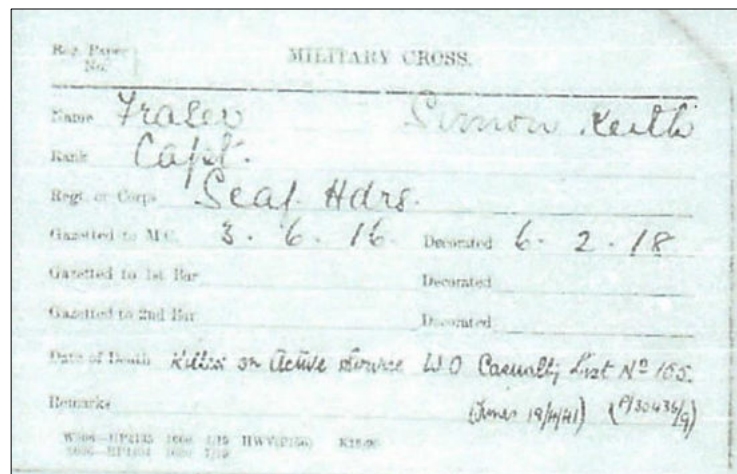 Reg. Paper
No.
MILITARY CROSS.
Name Fraser Simon Keith
Rank Capt.
Regt. or Corps Seaf. Hdrs.
Gazetted to M.C. 3. 6. 16. Decorated 6. 2. 18
Gazetted to 1st Bar Decorated
Gazetted to 2nd Bar Decorated
Date of Death Killed on Active Service W.O Casualty List Nº 165.
Remarks (Times 19/4/41) (P/30436/9)